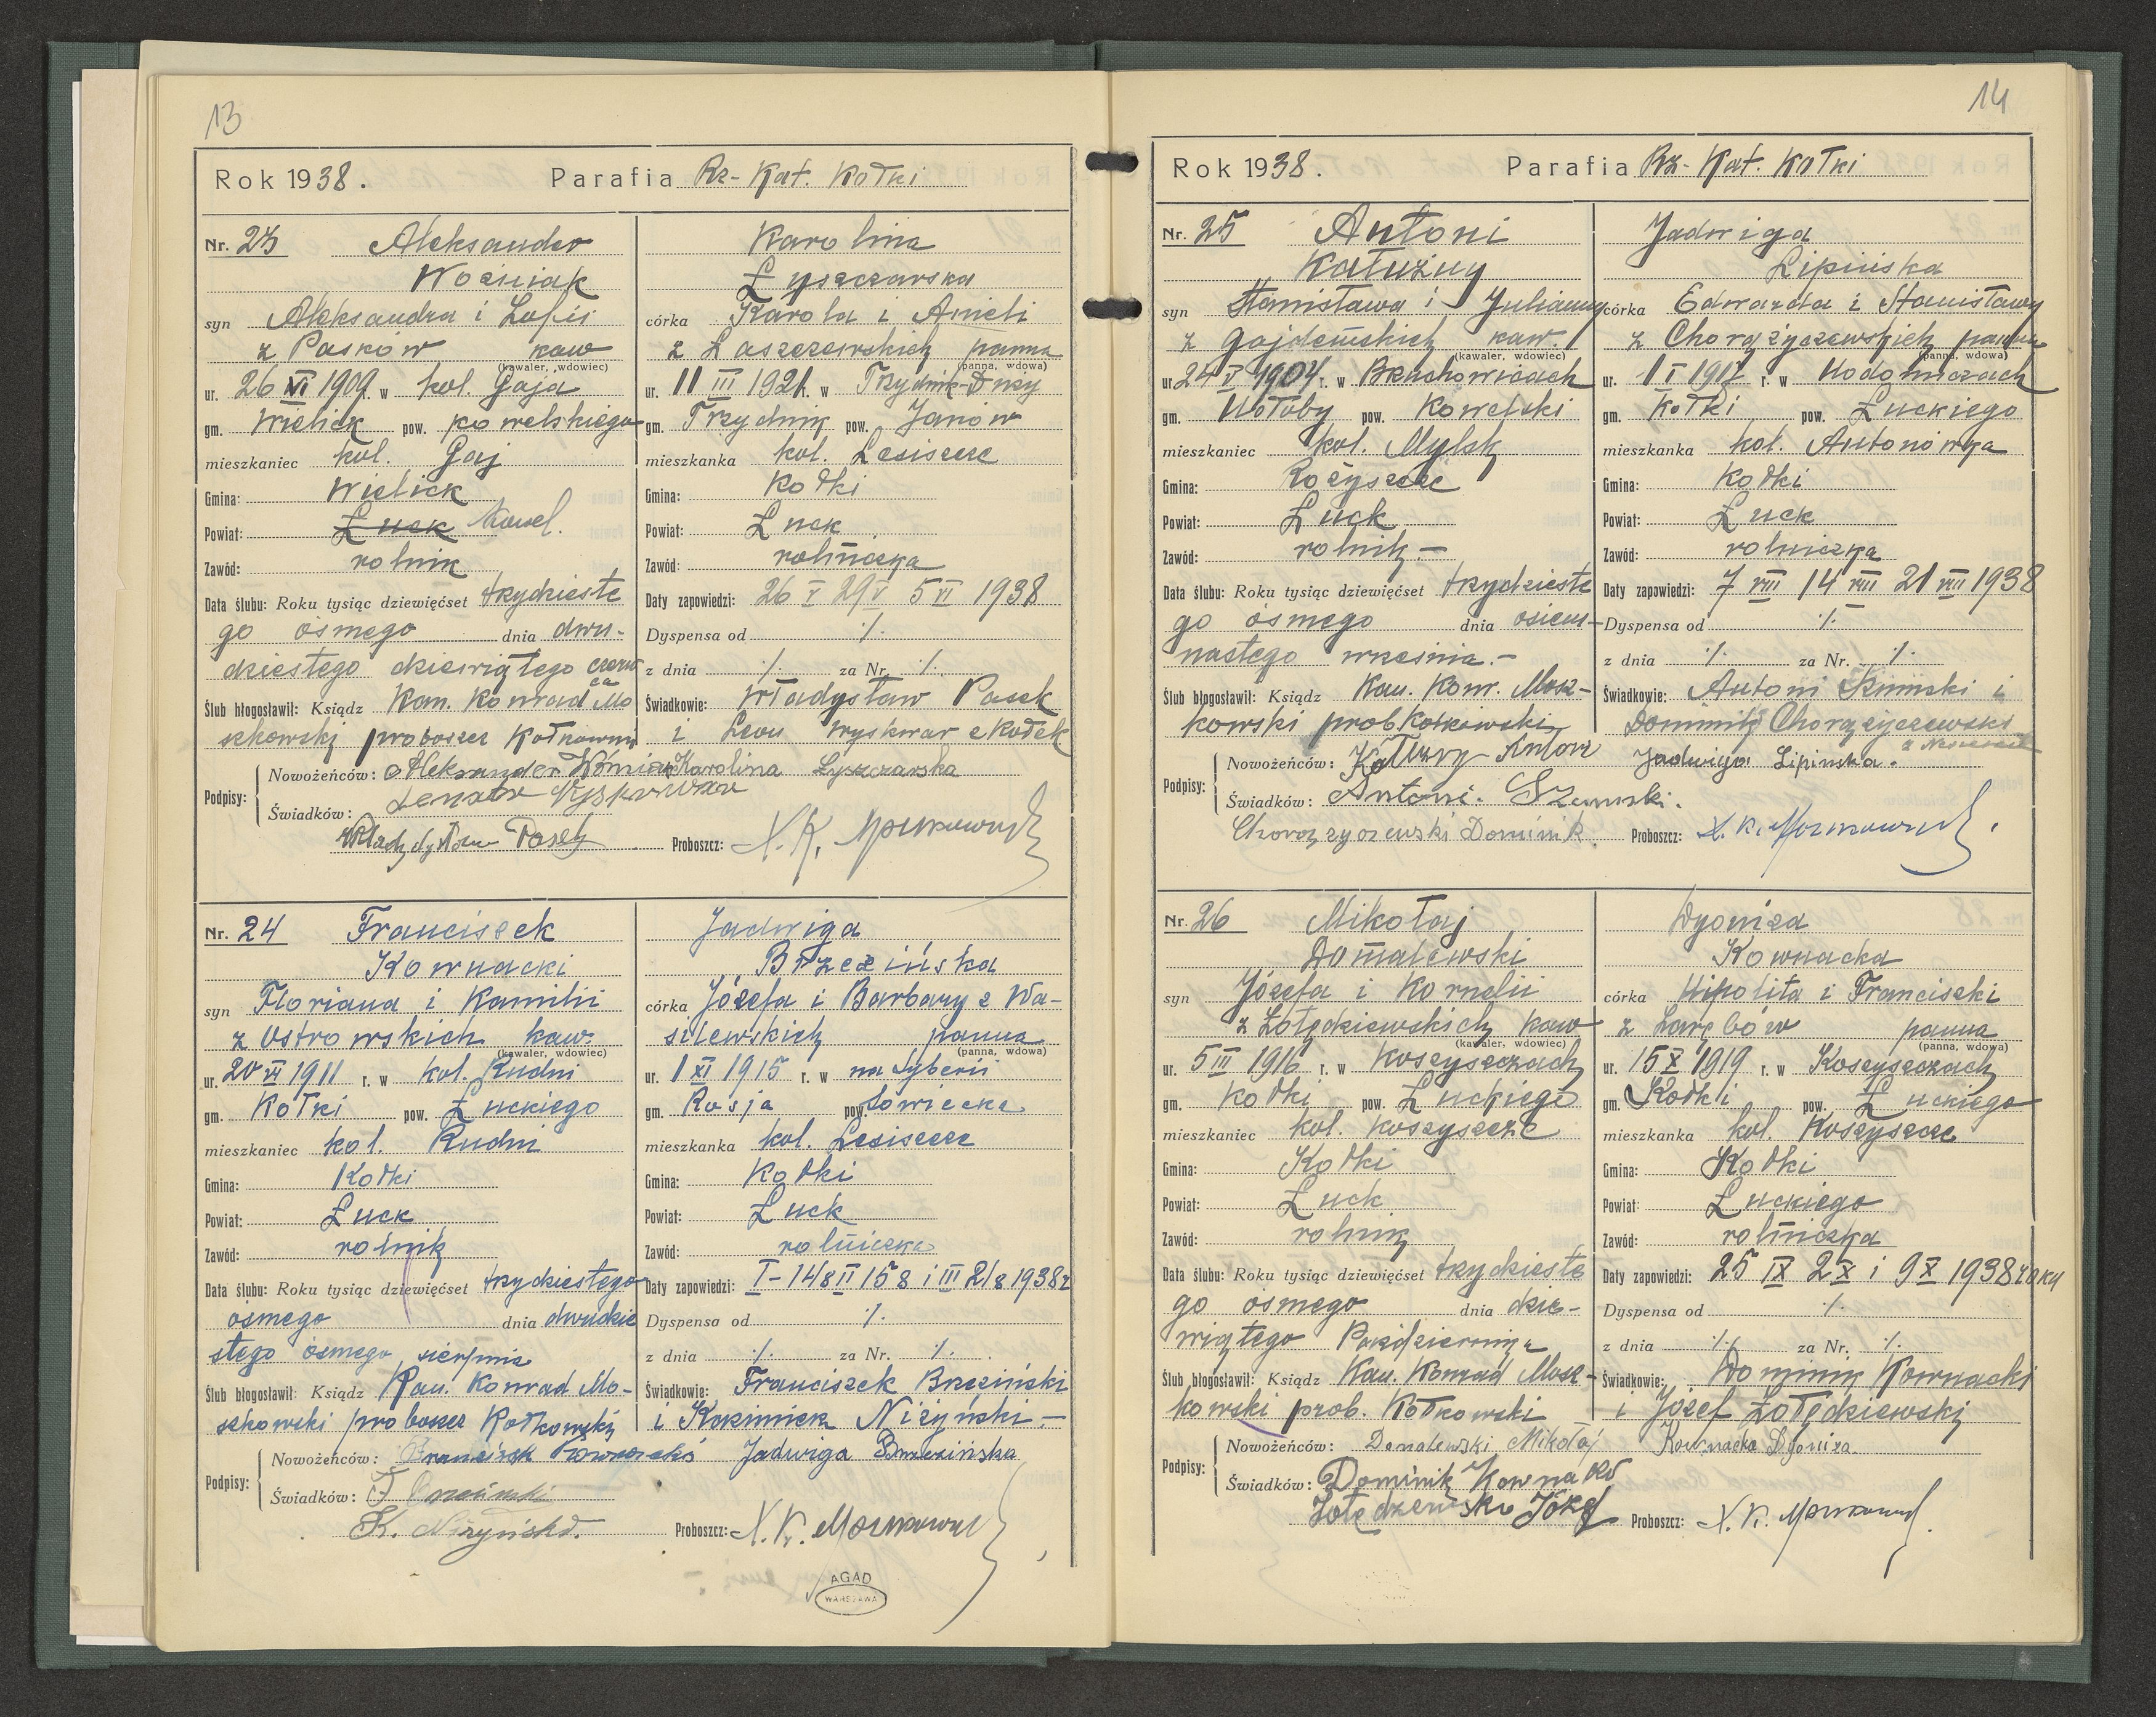 13
Rok 1938. Parafia Rz-Kat. Kołki
Nr. 23 Aleksander
Woźniak
syn Aleksandra i Zofii
z Pasków kaw
(kawaler, wdowiec)
ur. 26 VI 1909 r. w kol. Gaja
gm. Wielick pow. Kowelskiego
mieszkaniec kol. Gaj
Gmina: Wielick
Powiat: Łuck Kowel.
Zawód: rolnik
Data ślubu: Roku tysiąc dziewięćset trzydzieste
go ósmego dnia dwu-
dziestego dziewiątego czerw
ca
Ślub błogosławił: Ksiądz Kan. Konrad Mo
szkowski proboszcz Kołkowski
Karolina
Łyszczarska
córka Karola i Anieli
z Łaszczewskich panna
(panna, wdowa)
ur. 11 III 1921 r. w Trzydnik-Duży
gm. Trzydnik pow. Janów
mieszkanka kol. Lesiszcze
Gmina: Kołki
Powiat: Łuck
Zawód: rolniczka
Daty zapowiedzi: 26 V 29 V 5 VI 1938
Dyspensa od ./.
z dnia ./. za Nr. ./.
Świadkowie: Władysław Pasek
i Leon Wyskwar z Kołek
Podpisy:
Nowożeńców: Aleksander Woźniak Karolina Łyszczarska
Świadków: Wyskwar
Władysław Pasek Proboszcz: X. K. Moszkowski
Nr. 24 Franciszek
Kownacki
syn Floriana i Kamilii
z Ostrowskich kaw.
(kawaler, wdowiec)
ur. 20 VI 1911 r. w kol. Rudni
gm. Kołki pow. Łuckiego
mieszkaniec kol. Rudni
Gmina: Kołki
Powiat: Łuck
Zawód: rolnik
Data ślubu: Roku tysiąc dziewięćset trzydziestego
ósmego dnia dwudzie
stego ósmego sierpnia
Ślub błogosławił: Ksiądz Kan. Konrad Mo-
szkowski proboszcz Kołkowski
Jadwiga
Brzezińska
córka Józefa i Barbary z Wa-
silewskich panna
(panna, wdowa)
ur. 1 XI 1915 r. w na Syberii
gm. Rosja pow. Sowiecka
mieszkanka kol. Lesiszcze
Gmina: Kołki
Powiat: Łuck
Zawód: rolniczka
Daty zapowiedzi: I-14/8 II 15 8 i III 21/8 1938 r
Dyspensa od ./.
z dnia ./. za Nr. ./.
Świadkowie: Franciszek Brzeziński
i Kazimierz Niżyński -
Podpisy:
Nowożeńców: Franciszek Kownacki Jadwiga Brzezińska
Świadków: F Brzeziński
K. Niżyński. Proboszcz: X. K. Moszkowski
AGAD
WARSZAWA
14
Rok 1938. Parafia Rz-Kat. Kołki
Nr. 25 Antoni
Kałużny
syn Stanisława i Julianny
z Gajdemskich kaw.
(kawaler, wdowiec)
ur. 24 V 1904 r. w Bruchowiczach
gm. Hołoby pow. Kowelski
mieszkaniec kol. Mylsk
Gmina: Rożyszcze
Powiat: Łuck
Zawód: rolnik -
Data ślubu: Roku tysiąc dziewięćset trzydzieste
go ósmego dnia osiem-
nastego września.-
Ślub błogosławił: Ksiądz Kan. Konr. Mosz-
kowski prob. Kołkowski
Jadwiga
Lipińska
córka Edwarda i Stanisławy
z Chorążyczewskich panna
(panna, wdowa)
ur. 1 I 1917 r. w
gm. Kołki pow. Łuckiego
mieszkanka kol. Antonówka
Gmina: Kołki
Powiat: Łuck
Zawód: rolniczka
Daty zapowiedzi: 7 VIII 14 VIII 21 VIII 1938
Dyspensa od ./.
z dnia ./. za Nr. ./.
Świadkowie: Antoni i
Dominik Chorążyczewski
Podpisy:
Nowożeńców: Kałużny Antoni Jadwiga Lipinska.
Świadków: Antoni.
Chorążyczewski Dominik. Proboszcz: X. K. Moszkowski
Nr. 26 Mikołaj
Domalewski
syn Józefa i Kornelii
z Żołędziewskich kaw
(kawaler, wdowiec)
ur. 5 III 1916 r. w Koszyszczach
gm. Kołki pow. Łuckiego
mieszkaniec kol. Koszyszcze
Gmina: Kołki
Powiat: Łuck
Zawód: rolnik
Data ślubu: Roku tysiąc dziewięćset trzydzieste
go ósmego dnia dzie-
wiątego Października
Ślub błogosławił: Ksiądz Kan. Konrad Mosz-
kowski prob. Kołkowski
Dyoniza
Kownacka
córka Hipolita i Franciszki
z Zarębów panna
(panna, wdowa)
ur. 15 X 1919 r. w Koszyszczach
gm. Kołki pow. Łuckiego
mieszkanka kol. Koszyszcze
Gmina: Kołki
Powiat: Łuckiego
Zawód: rolniczka
Daty zapowiedzi: 25 IX 2 X i 9 X 1938 roku
Dyspensa od ./.
z dnia ./. za Nr. ./.
Świadkowie: Dominik Kownacki
i Józef Żołędziewski
Podpisy:
Nowożeńców: Domalewski Mikołaj Kownacka Dyoniza.
Świadków: Dominik Kownacki
Żołędziewski Józef Proboszcz: X. K. Moszkowski.